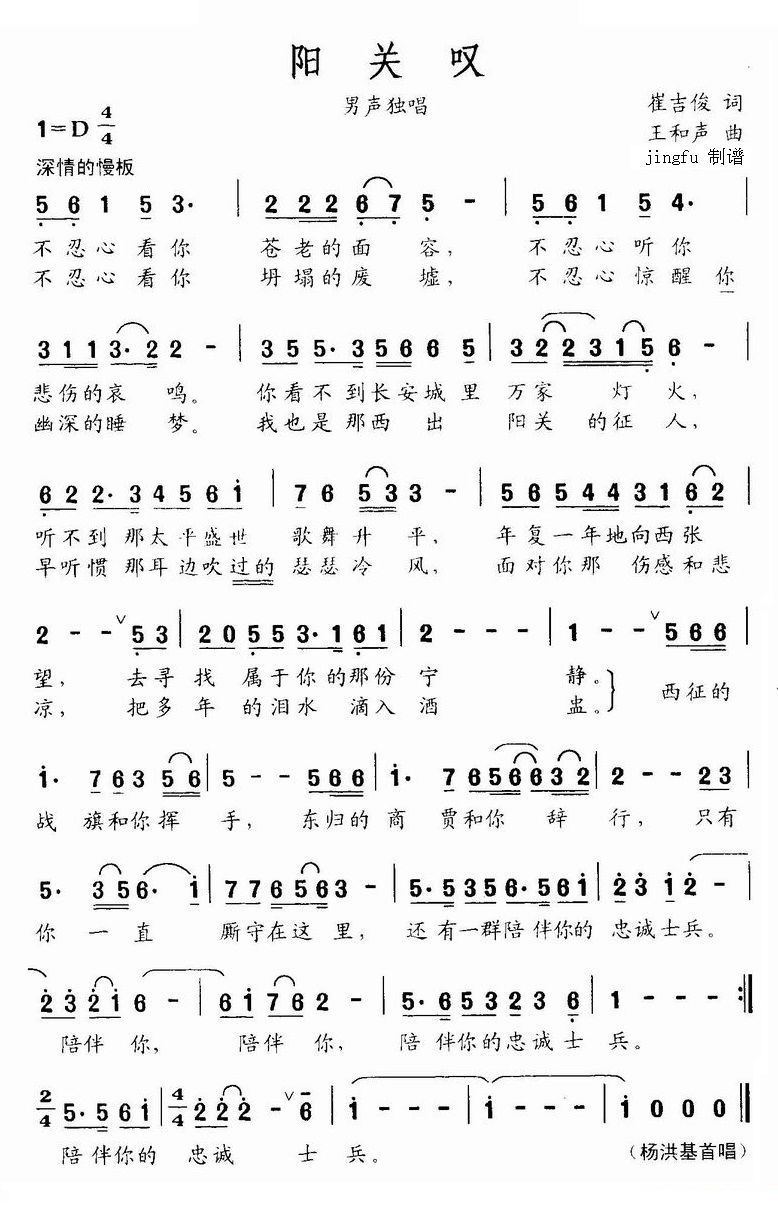 阳关叹
男声独唱
崔吉俊 词
1=D 4/4
王和声 曲
jingfu 制谱
深情的慢板
5 6 1 5 3· | 2 2 2 2 6 7 5 - | 5 6 1 5 4· |
不忍心看你 苍老的面 容， 不忍心听你
不忍心看你 坍塌的废 墟， 不忍心惊醒 你
3 1 1 3· 2 2 - | 3 5 5· 3 5 6 6 5 | 3 2 2 3 1 5 6 - |
悲伤的哀 鸣。 你看不到长安城里 万家 灯 火，
幽深的睡 梦。 我也是那西出 阳关 的征 人，
6 2 2· 3 4 5 6 i | 7 6 5 3 3 - | 5 6 5 4 4 3 1 6 2 |
听不到 那太平盛世 歌舞升 平， 年复一年地向西张
早听惯 那耳边吹过的 瑟瑟冷 风， 面对你那 伤感和悲
2 - - ∨ 5 3 | 2 0 5 5 3· 1 6 1 | 2 - - - | 1 - ∨ 5 6 6 |
望， 去寻找 属于你的那份宁 静。 西征的
凉， 把多年 的泪水 滴入酒 盅。
i· 7 6 3 5 6 | 5 - - 5 6 6 | i· 7 6 5 6 6 3 2 | 2 - - 2 3 |
战 旗和你挥 手， 东归的 商 贾和你 辞 行， 只有
5· 3 5 6· i | 7 7 6 5 6 3 - | 5· 5 3 5 6· 5 6 i | 2 3 i 2 - |
你 一直 厮守在这 里， 还有一群陪伴你的 忠诚士兵。
2 3 2 i 6 - | 6 i 7 6 2 - | 6· 6 5 3 2 3 6 | 1 - - - :‖
陪伴 你， 陪伴 你， 陪 伴你的忠诚士 兵。
2/4 5· 5 6 i | 4/4 2 2 2 - ∨ 6 | i - - - | i - - - | i 0 0 0 ‖
陪伴你的 忠诚 士 兵。
（杨洪基首唱）